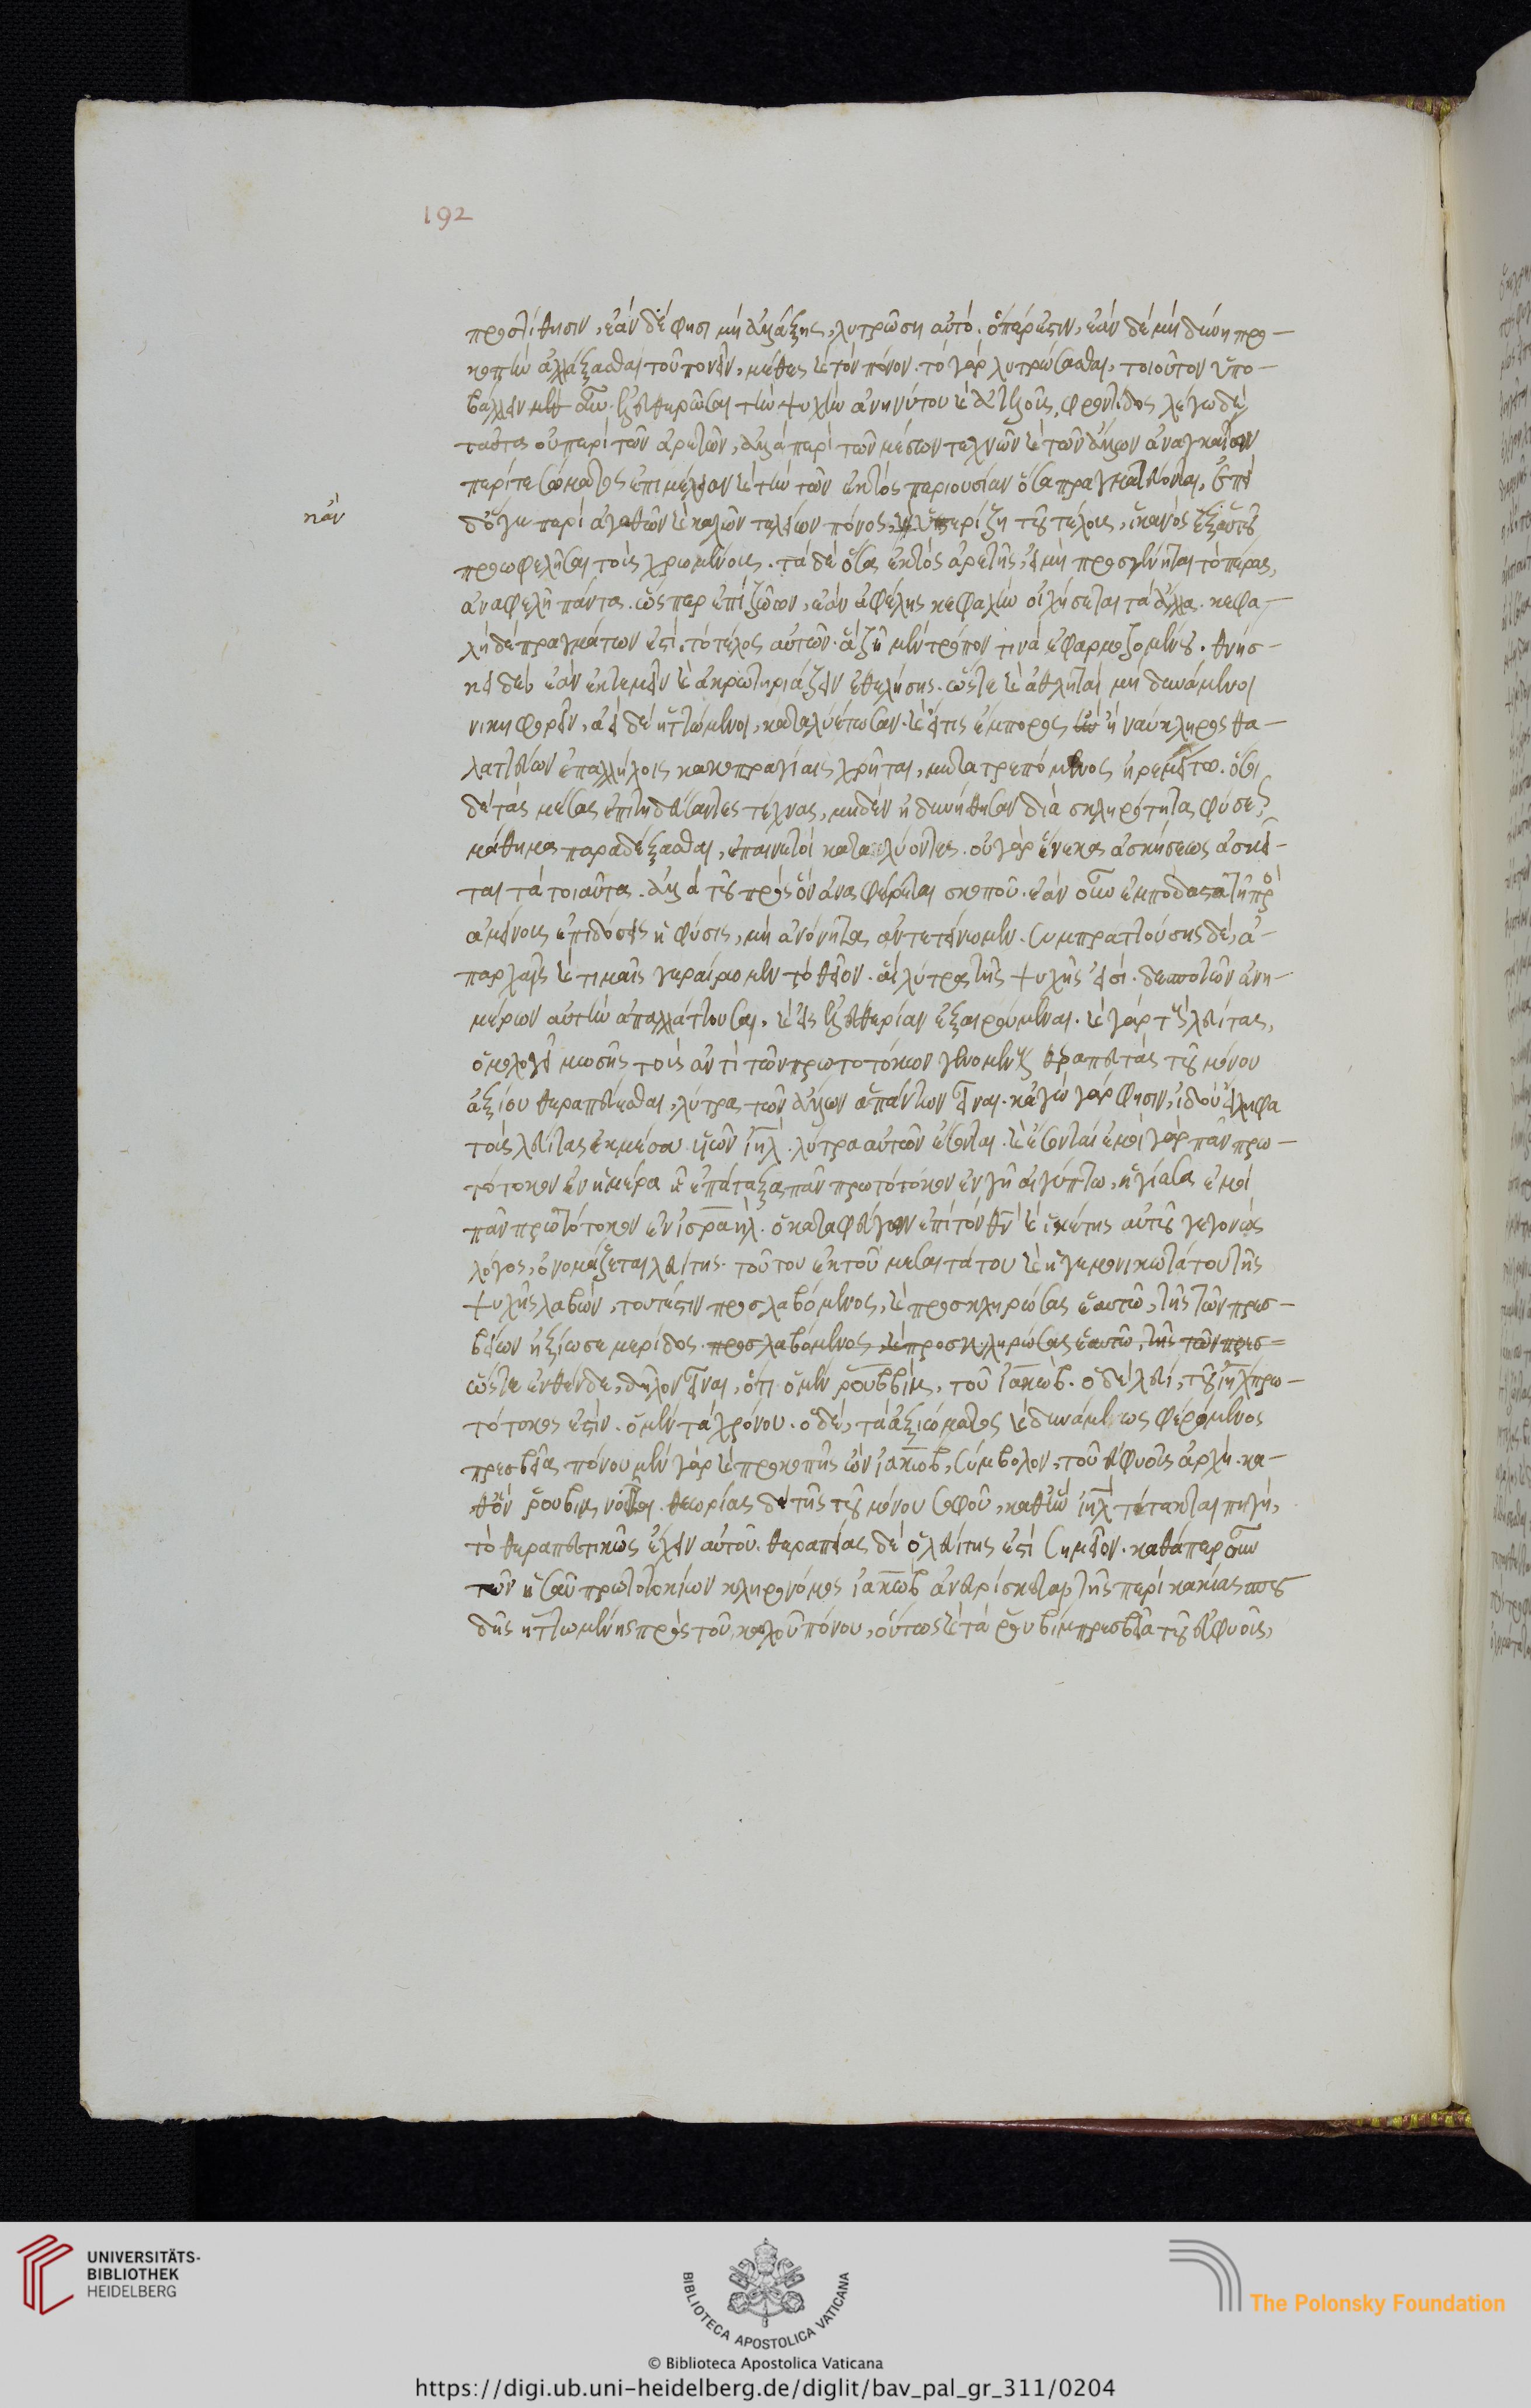 192
προστίθησιν, ἐὰν δέ φησι μὴ ἀλλάξης, λυτρώση αὐτό. ὅπέρ ἐστιν, ἐὰν δὲ μὴ δύνη προ-
κοπὴν ἀλλάξασθαι τοῦ πονεῖν, μέθες καὶ τὸν πόνον. τὸ γὰρ λυτρώσασθαι, τοιοῦτον ὑπο-
βάλλειν ἐλευθερῶσαι τὴν ψυχὴν ἀνηνύτου καὶ ἀτελοῦς φροντίδος λέγω δὲ
ταῦτα οὐ περὶ τῶν ἀρετῶν, ἀλλὰ περὶ τῶν μέσων τεχνῶν καὶ τῶν ἄλλων ἀναγκαίων
περί τε σώματος ἐπιμέλειαν καὶ τὴν τῶν ἐκτὸς περιουσίαν ὅσα πραγματεύονται, ἐπεὶ
κἂν
ὅ γε περὶ ἀγαθῶν καὶ καλῶν τελείων πόνος, ὑστερίζη τοῦ τέλους, ἱκανὸς ἐξ αὐτοῦ
προωφελῆσαι τοὺς χρωμένους. τὰ δὲ ὅσα ἐκτὸς ἀρετῆς, εἰ μὴ προσγένηται τὸ πέρας,
ἀνωφελῆ πάντα. ὥσπερ ἐπὶ ζώων, ἐὰν ἀφέλης κεφαλὴν οἰχήσεται τὰ ἄλλα. κεφα-
λὴ δὲ πραγμάτων ἐστὶ τὸ τέλος αὐτῶν. ἃ ζῆ μὲν τρόπον τινὰ ἐφαρμοζομένου. θνήσ-
κει δὲ ἐὰν ἐκτεμεῖν καὶ ἀκρωτηριάζειν ἐθελήσης. ὥστε καὶ ἀθληταὶ μὴ δυνάμενοι
νικηφορεῖν, ἀεὶ δὲ ἡττώμενοι, καταλυέτωσαν. καὶ εἴ τις ἔμπορος ἢ ναύκληρος θα-
λαττεύων ἐπαλλήλοις κακοπραγίαις χρῆται, μετατρεπόμενος ἠρεμείτω. ὅσοι
δὲ τὰς μέσας ἐπιτηδεύσαντες τέχνας, μηδὲν ἠδυνήθησαν διὰ σκληρότητα φύσεως
μάθημα παραδέξασθαι, ἐπαινετοὶ καταλύοντες. οὐ γὰρ ἕνεκα ἀσκήσεως ἀσκεῖ-
ται τὰ τοιαῦτα. ἀλλὰ τοῦ πρὸς ὃν ἀναφέρεται σκοποῦ. ἐὰν οὖν ἐμποδοστατῆ πρὸς
ἀμείνους ἐπιδόσεις ἡ φύσις, μὴ ἀνόνητα ἀντιτείνωμεν. συμπραττούσης δὲ, ἀ-
παρχαῖς καὶ τιμαῖς γεραίρομεν τὸ θεῖον. αἳ λύτρα τῆς ψυχῆς εἰσί. δεσποτῶν ἀνη-
μέρων αὐτὴν ἀπαλλάττουσαι, καὶ εἰς ἐλευθερίαν ἐξαιρούμεναι. καὶ γὰρ τοὺς λευίτας,
ὁμολογεῖ μωσῆς τοὺς ἀντὶ τῶν πρωτοτόκων γενομένους θεραπευτὰς τοῦ μόνου
ἀξίου θεραπεύεσθαι, λύτρα τῶν ἄλλων ἁπάντων εἶναι. κἀγὼ γάρ φησιν, ἰδοὺ εἴληφα
τοὺς λευίτας ἐκ μέσου υἱῶν ιηλ. λύτρα αὐτῶν ἔσονται. καὶ ἔσονται ἐμοὶ γὰρ πᾶν πρω-
τότοκον ἐν ἡμέρα ἧ ἐπάταξα πᾶν πρωτότοκον ἐν γῆ αἰγύπτω, ἡγίασα ἐμοὶ
πᾶν πρωτότοκον ἐν ισραηλ. ὁ καταφεύγων ἐπὶ τὸν θν καὶ ἱκέτης αὐτοῦ γεγονὼς
λόγος, ὀνομάζεται λευίτης. τοῦτον ἐκ τοῦ μεσαιτάτου καὶ ἡγεμονικωτάτου τῆς
ψυχῆς λαβὼν, τουτέστιν προσλαβόμενος, καὶ προσκληρώσας ἑαυτῶ, τῆς τῶν πρεσ-
βείων ἠξίωσε μερίδος. προσλαβόμενος καὶ προσκληρώσας ἑαυτῶ, τῆς τῶν πρεσ-
ὥστε ἐνθένδε, δῆλον εἶναι, ὅτι ὁ μὲν ρουββὶμ, τοῦ ἰακώβ. ὁ δὲ λευὶ, τοῦ ιηλ πρω-
τότοκος ἐστίν. ὁ μὲν τὰ χρόνου. ὁ δὲ, τὰ ἀξιώματος καὶ δυνάμεως φερόμενος
πρεσβεῖα. πόνου μὲν γὰρ καὶ προκοπῆς ὢν ἰακὼβ, σύμβολον, τοῦ εὐφυοῦς ἀρχή. κα-
θ' ὃν ρουβὶμ νοεῖται. θεωρίας δὲ τῆς τοῦ μόνου σοφοῦ, καθ' ἣν ιηλ τέτακται πηγή,
τὸ θεραπευτικῶς ἔχειν αὐτοῦ. θεραπείας δὲ ὁ λευίτης ἐστὶ σημεῖον. καθάπερ οὖν
τῶν ἡσαῦ πρωτοτοκίων κληρονόμος ἰακὼβ ἀνευρίσκεται τῆς περὶ κακίας σπου
δῆς ἡττωμένης πρὸς τοῦ καλοῦ πόνου, οὕτως καὶ τὰ ρουβὶμ πρεσβεῖα τοῦ εὐφυοῦς,
UNIVERSITÄTS-
BIBLIOTHEK
HEIDELBERG
BIBLIOTECA APOSTOLICA VATICANA
The Polonsky Foundation
© Biblioteca Apostolica Vaticana
https://digi.ub.uni-heidelberg.de/diglit/bav_pal_gr_311/0204